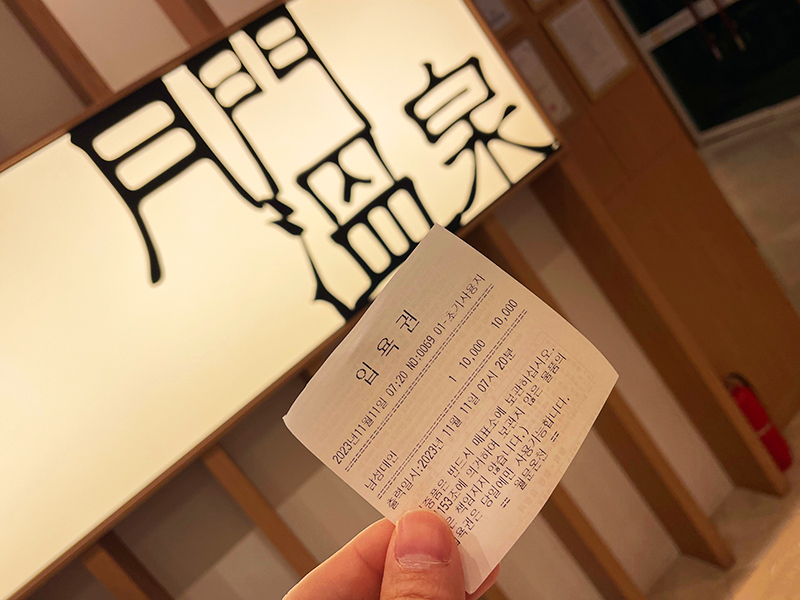 月門溫泉
입 욕 권
2023년11월11일 07:20 NO:0069 01-초기사용자
남성대인 1 10,000 10,000
출력일시:2023년 11월 11일 07시 20분
중품은 반드시 매표소에 보관하십시오.
153조에 의거하여 보관지 않은 물품의
은 책임지지 않습니다.)
욕권은 당일에만 사용가능합니다.
== 월문온천 ==